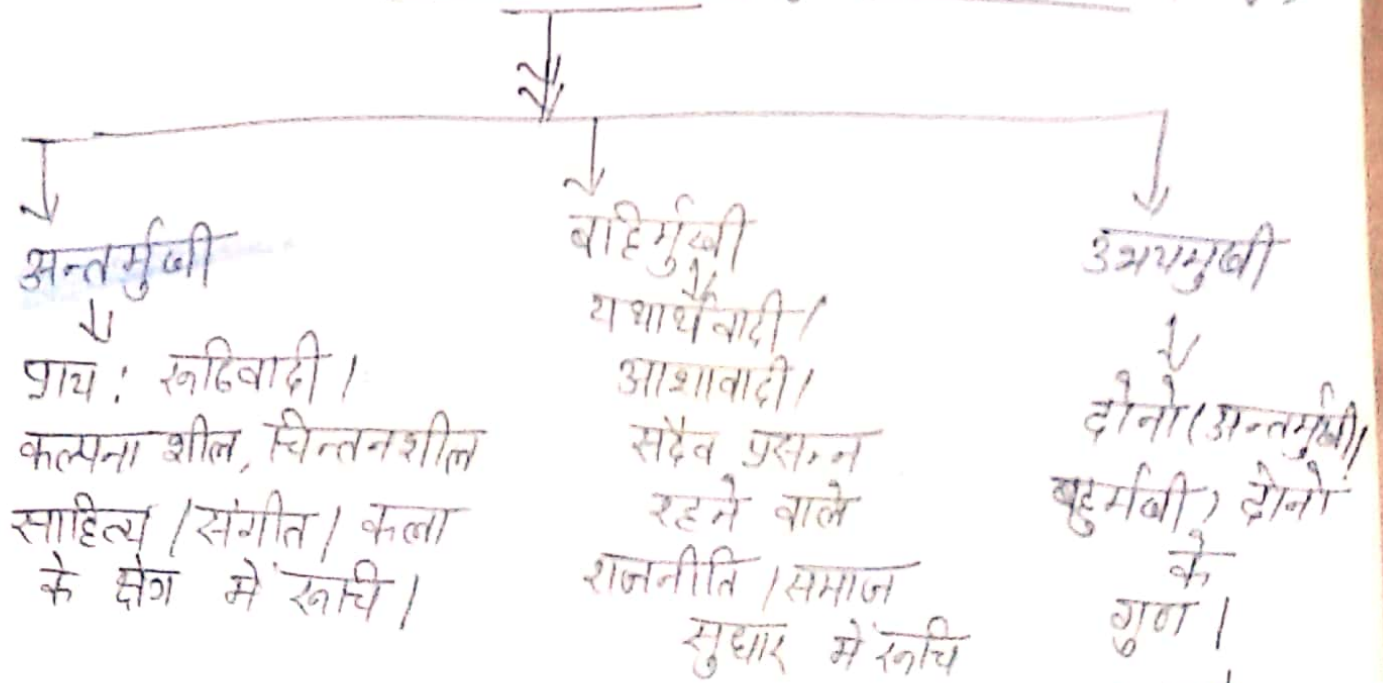 अन्तर्मुखी
प्राय: रूढिवादी।
कल्पना शील, चिन्तनशील
साहित्य / संगीत / कला
के क्षेत्र में रूचि।
बाहिर्मुखी
यथार्थवादी।
आशावादी।
सदैव प्रसन्न
रहने वाले
राजनीति / समाज
सुधार में रूचि
उभयमुखी
दोनो (अन्तर्मुखी/
बहुर्मुखी) दोनों
के
गुण।